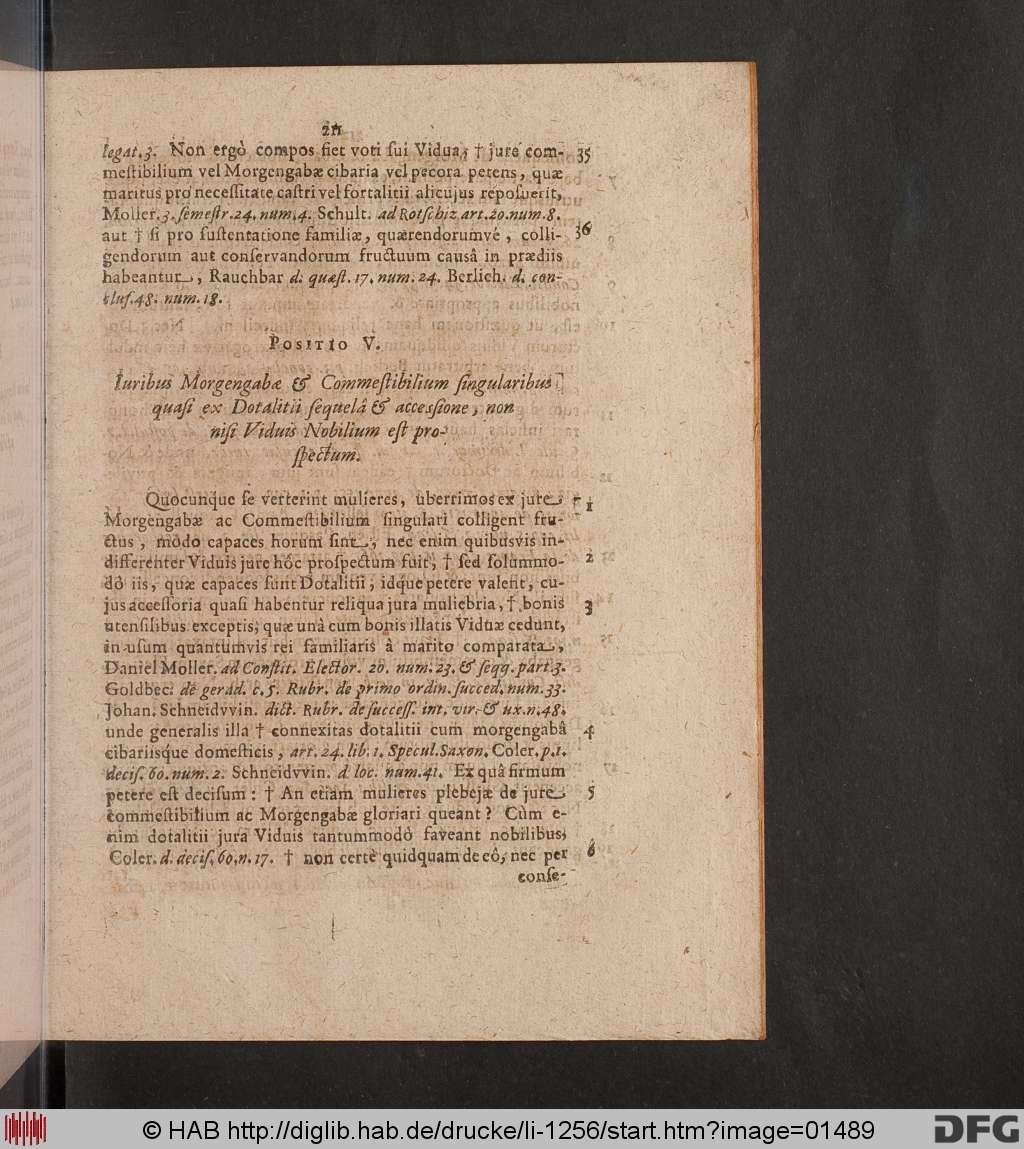 21
legat. 3. Non ergò compos fiet voti sui Vidua, † jure com- 35
mestibilium vel Morgengabæ cibaria vel pecora petens, quæ
maritus pro necessitate castri vel fortalitii alicujus reposuerit,
Moller. 3. semestr. 24. num. 4. Schult. ad Rotschiz art. 20. num. 8.
aut † si pro sustentatione familiæ, quærendorumvé, colli- 36
gendorum aut conservandorum fructuum causâ in prædiis
habeantur, Rauchbar d. quæst. 17. num. 24. Berlich. d. con-
clus. 48. num. 18.
POSITIO V.
Iuribus Morgengabæ & Commestibilium singularibus
quasi ex Dotalitii sequelâ & accessione, non
nisi Viduis Nobilium est pro-
spectum.
Quocunque se verterint mulieres, uberrimos ex jure † 1
Morgengabæ ac Commestibilium singulari colligent fru-
ctus, modò capaces horum sint, nec enim quibusvis in-
differenter Viduis jure hôc prospectum fuit, † sed solummo- 2
dò iis, quæ capaces sunt Dotalitii, idque petere valent, cu-
jus accessoria quasi habentur reliqua jura muliebria, † bonis 3
utensilibus exceptis, quæ unâ cum bonis illatis Viduæ cedunt,
in usum quantumvis rei familiaris â marito comparata,
Daniel Moller. ad Constit. Elector. 20. num. 23. & seqq. part. 3.
Goldbec. de gerad. c. 5. Rubr. de primo ordin. succed. num. 33.
Johan. Schneidvvin. dict. Rubr. de success. int. vir. & ux. n. 48.
unde generalis illa † connexitas dotalitii cum morgengabâ 4
cibariisque domesticis, art. 24. lib. 1. Specul. Saxon. Coler. p. 1.
decis. 60. num. 2. Schneidvvin. d. loc. num. 41. Ex quâ firmum
petere est decisum: † An etiam mulieres plebejæ de jure 5
commestibilium ac Morgengabæ gloriari queant? Cùm e-
nim dotalitii jura Viduis tantummodò faveant nobilibus,
Coler. d. decis. 60. n. 17. † non certè quidquam de eô, nec per 6
conse-
© HAB http://diglib.hab.de/drucke/li-1256/start.htm?image=01489
DFG